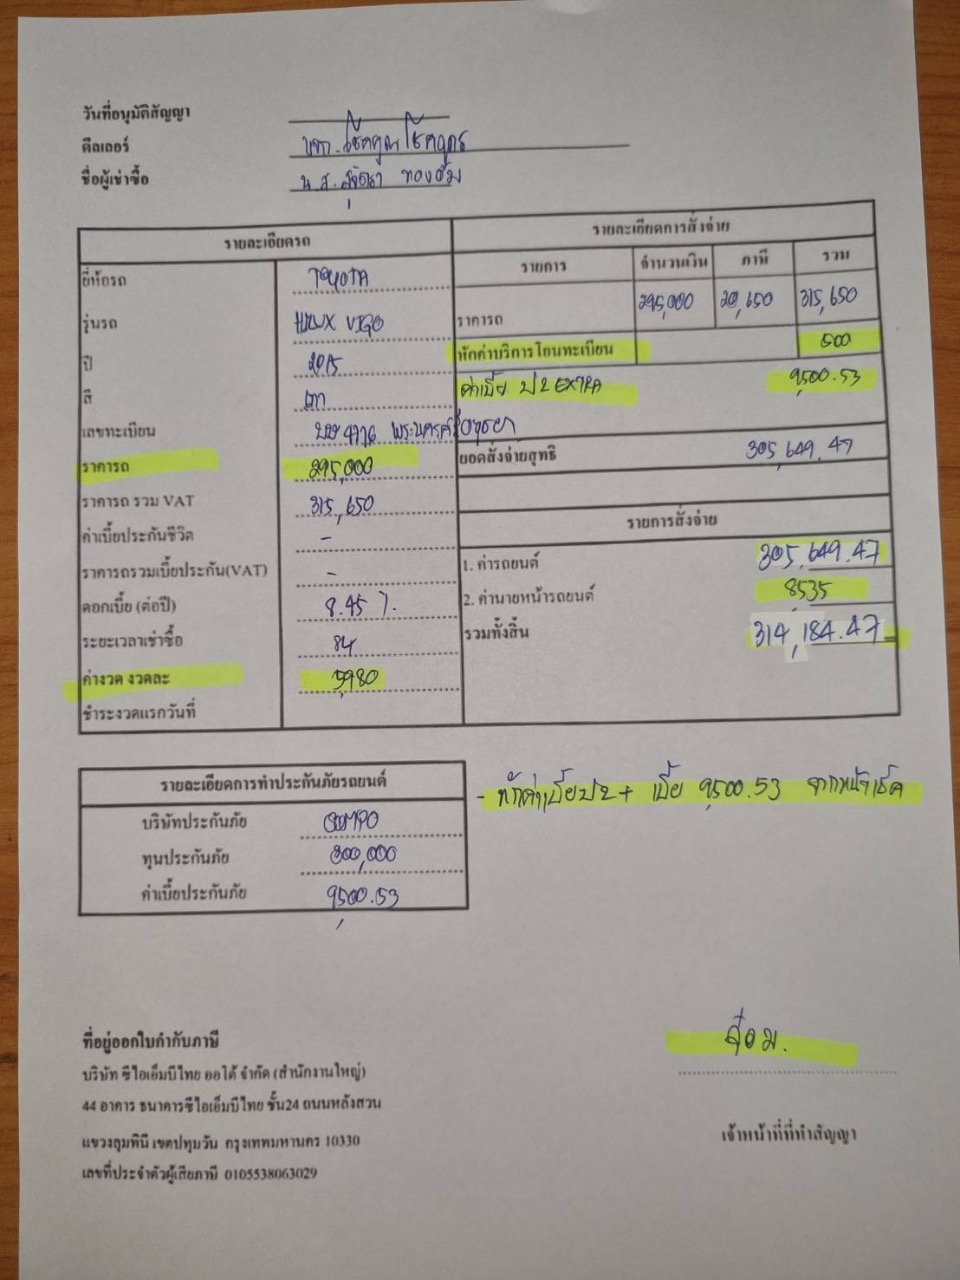 วันที่อนุมัติสัญญา
ดีลเลอร์ หจก. โชคคูณโชค
ชื่อผู้เช่าซื้อ น.ส.
รายละเอียดรถ
ยี่ห้อรถ TOYOTA
รุ่นรถ HILUX VIGO
ปี 2015
สี เทา
เลขทะเบียน 4776 พระนครศรีอยุธยา
ราคารถ 295,000
ราคารถ รวม VAT 315,650
ค่าเบี้ยประกันชีวิต -
ราคารถรวมเบี้ยประกัน(VAT) -
ดอกเบี้ย (ต่อปี) 8.45 %
ระยะเวลาเช่าซื้อ 84
ค่างวด งวดละ 5,980
ชำระงวดแรกวันที่
รายละเอียดการสั่งจ่าย
รายการ จำนวนเงิน ภาษี รวม
ราคารถ 295,000 20,650 315,650
หักค่าบริการโอนทะเบียน 500
ค่าเบี้ย ป2 EXTRA 9,500.53
ยอดสั่งจ่ายสุทธิ 305,649.47
รายการสั่งจ่าย
1. ค่ารถยนต์ 305,649.47
2. ค่านายหน้ารถยนต์ 8,535
รวมทั้งสิ้น 314,184.47
รายละเอียดการทำประกันภัยรถยนต์
บริษัทประกันภัย SOMPO
ทุนประกันภัย 300,000
ค่าเบี้ยประกันภัย 9,500.53
- หักค่าเบี้ยป2+ เบี้ย 9,500.53 จากหน้าเช็ค
ที่อยู่ออกใบกำกับภาษี
บริษัท ซีไอเอ็มบีไทย ออโต้ จำกัด (สำนักงานใหญ่)
44 อาคาร ธนาคารซีไอเอ็มบีไทย ชั้น24 ถนนหลังสวน
แขวงลุมพินี เขตปทุมวัน กรุงเทพมหานคร 10330
เลขที่ประจำตัวผู้เสียภาษี 0105538063029
เจ้าหน้าที่ที่ทำสัญญา